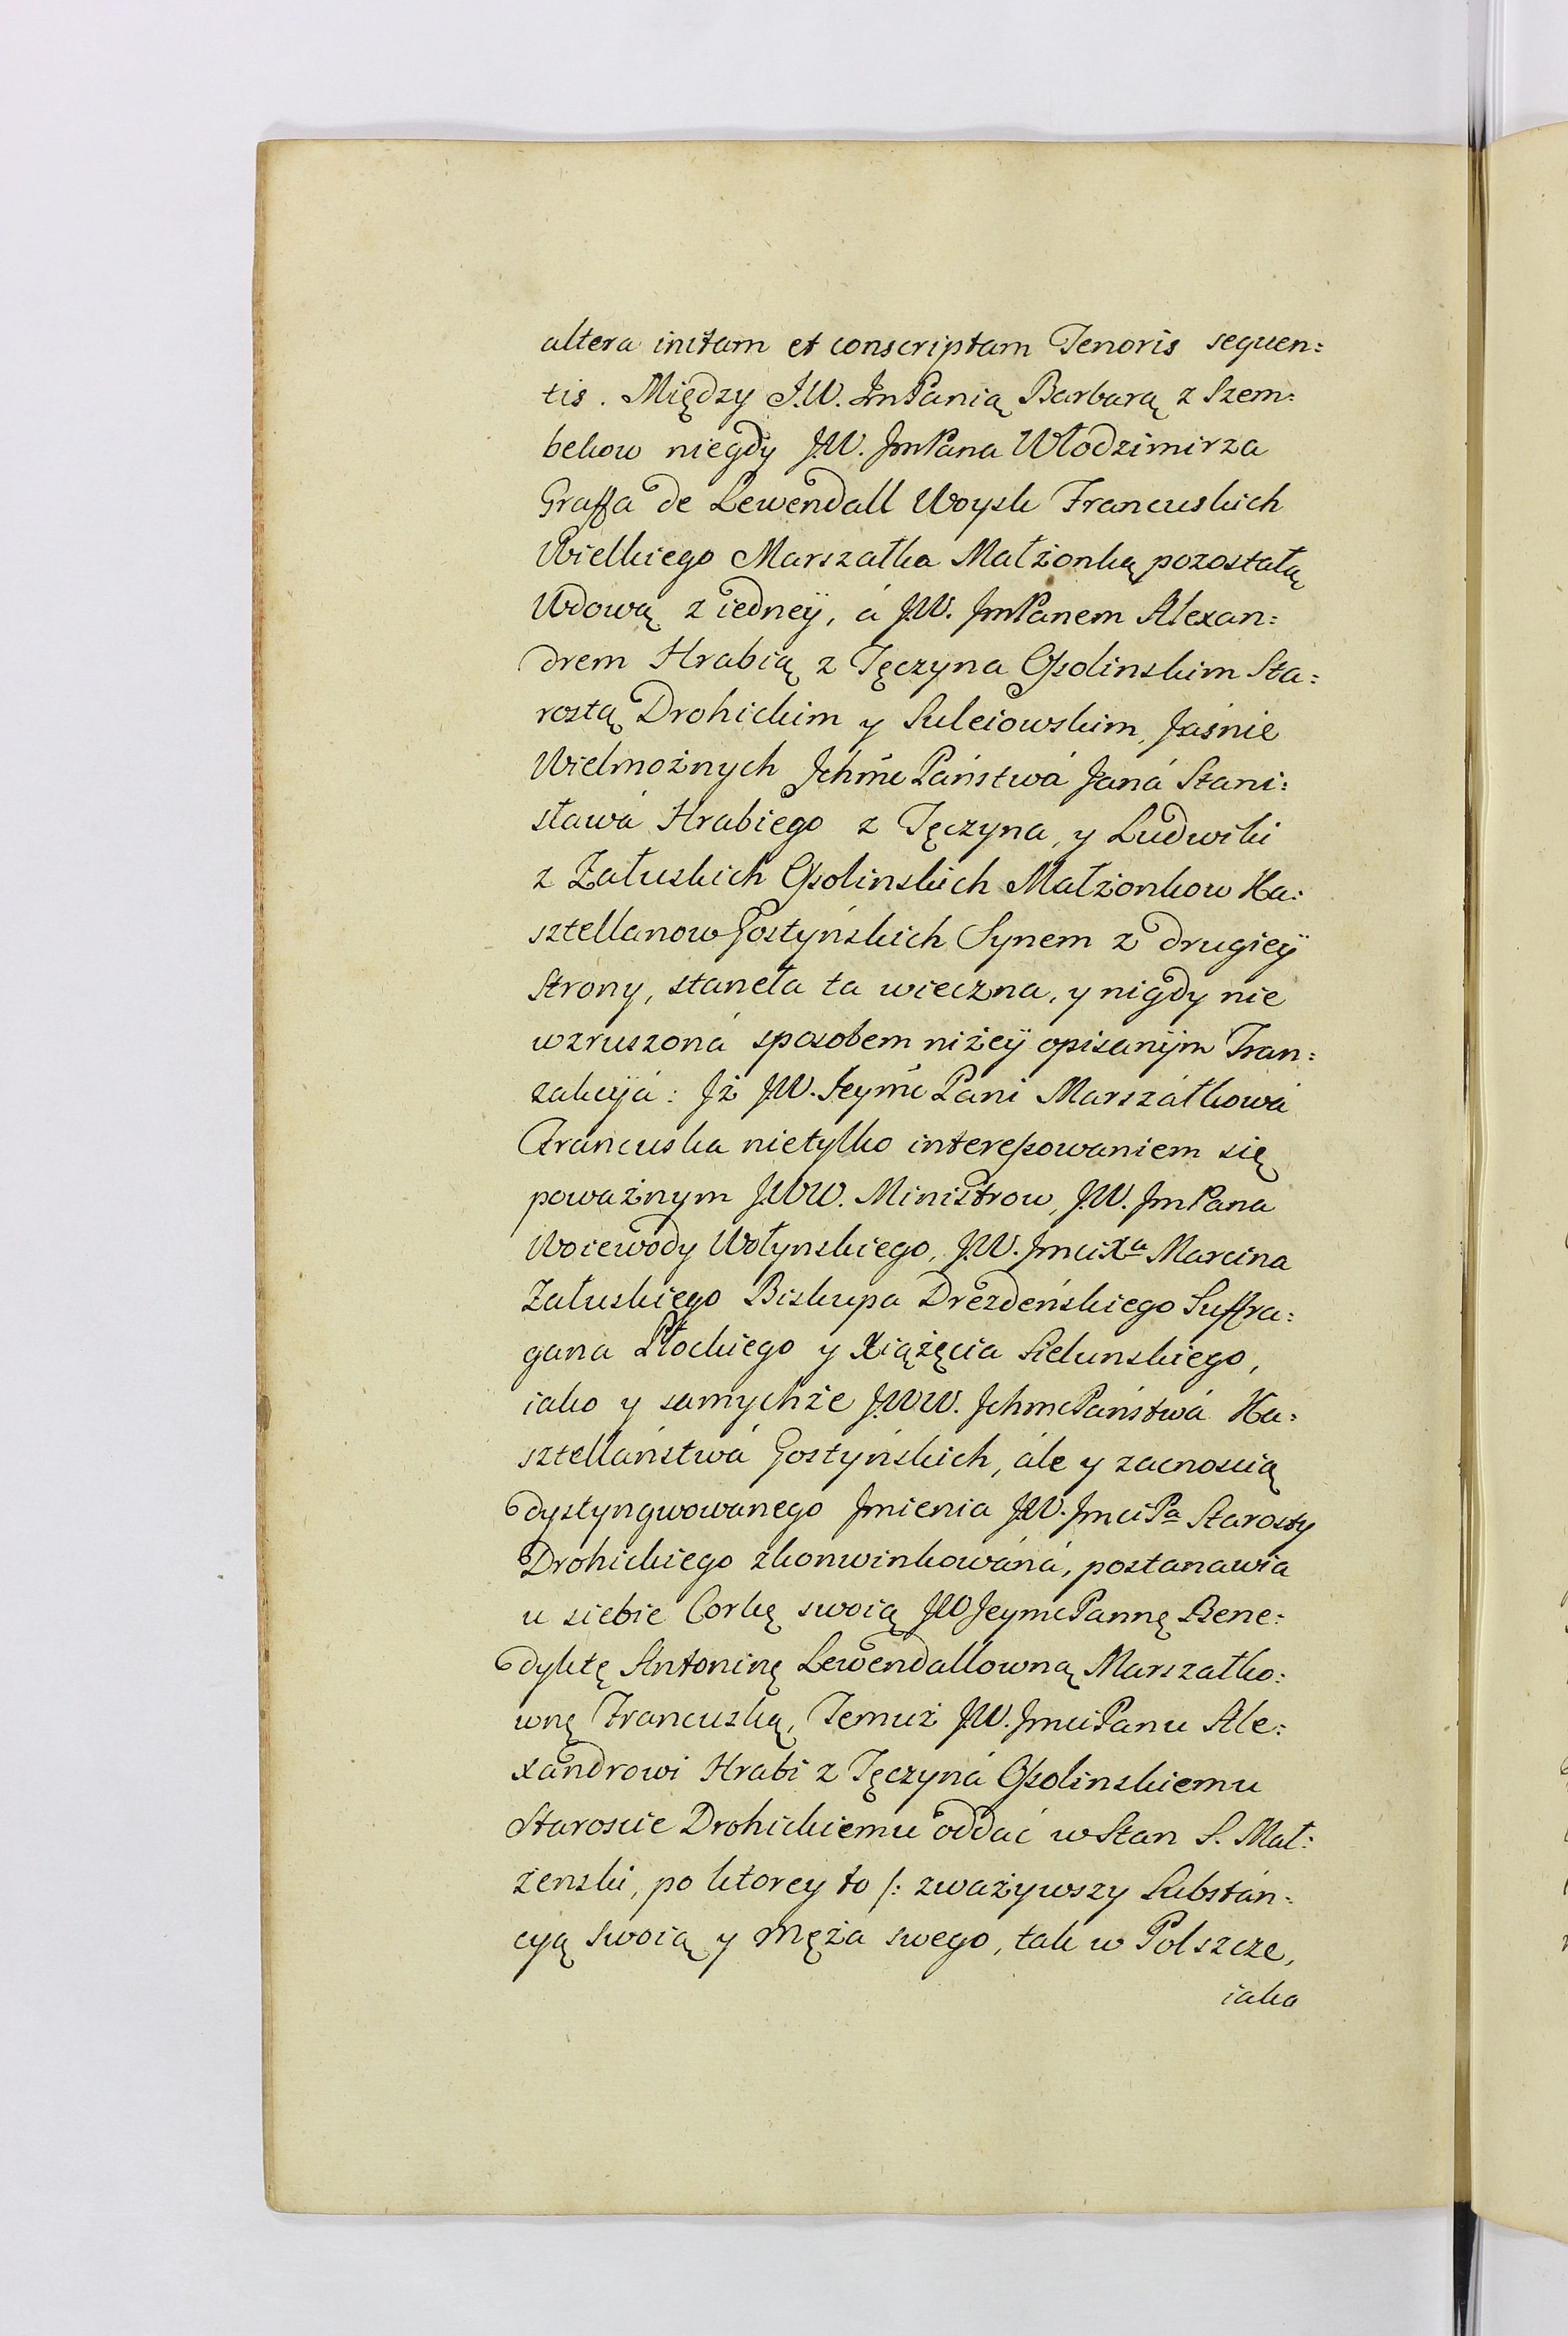 altera initam et conscriptam Tenoris sequen:
tis. Między J.W. JmPanią Barbarą z Szem:
bekow niegdy J.W. JmPana Włodzimirza
Graffa de Lewendall Woysk Francuskich
Wielkiego Marszałka Małżonką pozostałą
Wdową z iedneÿ, á J.W. JmPanem Alexan:
drem Hrabią z Tęczyna Ossolinskim Sta:
rostą Drohickim y Suleiowskim, Jaśnie
Wielmożnych Jchmć Państwá Janá Stani:
sławá Hrabiego z Tęczyna, y Ludwiki
z Załuskich Ossolinskich Małżonkow Ka:
sztellanow Gostyńskich Synem z drugieÿ
Strony, staneła ta wieczna, y nigdy nie
wzruszoná sposobem niżeÿ opisanÿm Tran:
zakcÿá: Jż J.W. Jeymć Pani Marszáłkowá
Francuska nietylko interessowaniem się
poważnym J.W.W. Ministrow, J.W. JmPana
Woiewody Wołynskiego, J.W. JmciXa Marcina
Załuskiego Biskupa Drezdeńskiego Suffra:
gana Płockiego y Xiążęcia Sielunskiego,
iako y samychże J.W.W. JchmcPaństwá Ka:
sztellaństwá Gostyńskich, ále y zacnoscią
dystyngwowanego Jmienia J.W. JmciPa Starosty
Drohickiego zkonwinkowáná, postanawia
u siebie Corkę swoią J.W JeymcPannę Bene:
dyktę Antoninę Lewendallowną Marszałko:
wnę Francuską, Temuż J.W. JmciPanu Ale:
xandrowi Hrabi z Tęczyná Ossolinskiemu
Staroscie Drohickiemu oddać w Stan S. Mał:
zenski, po ktorey to /: zważywszy Substán:
cyą swoią y Męża swego, tak w Polszcze,
iako